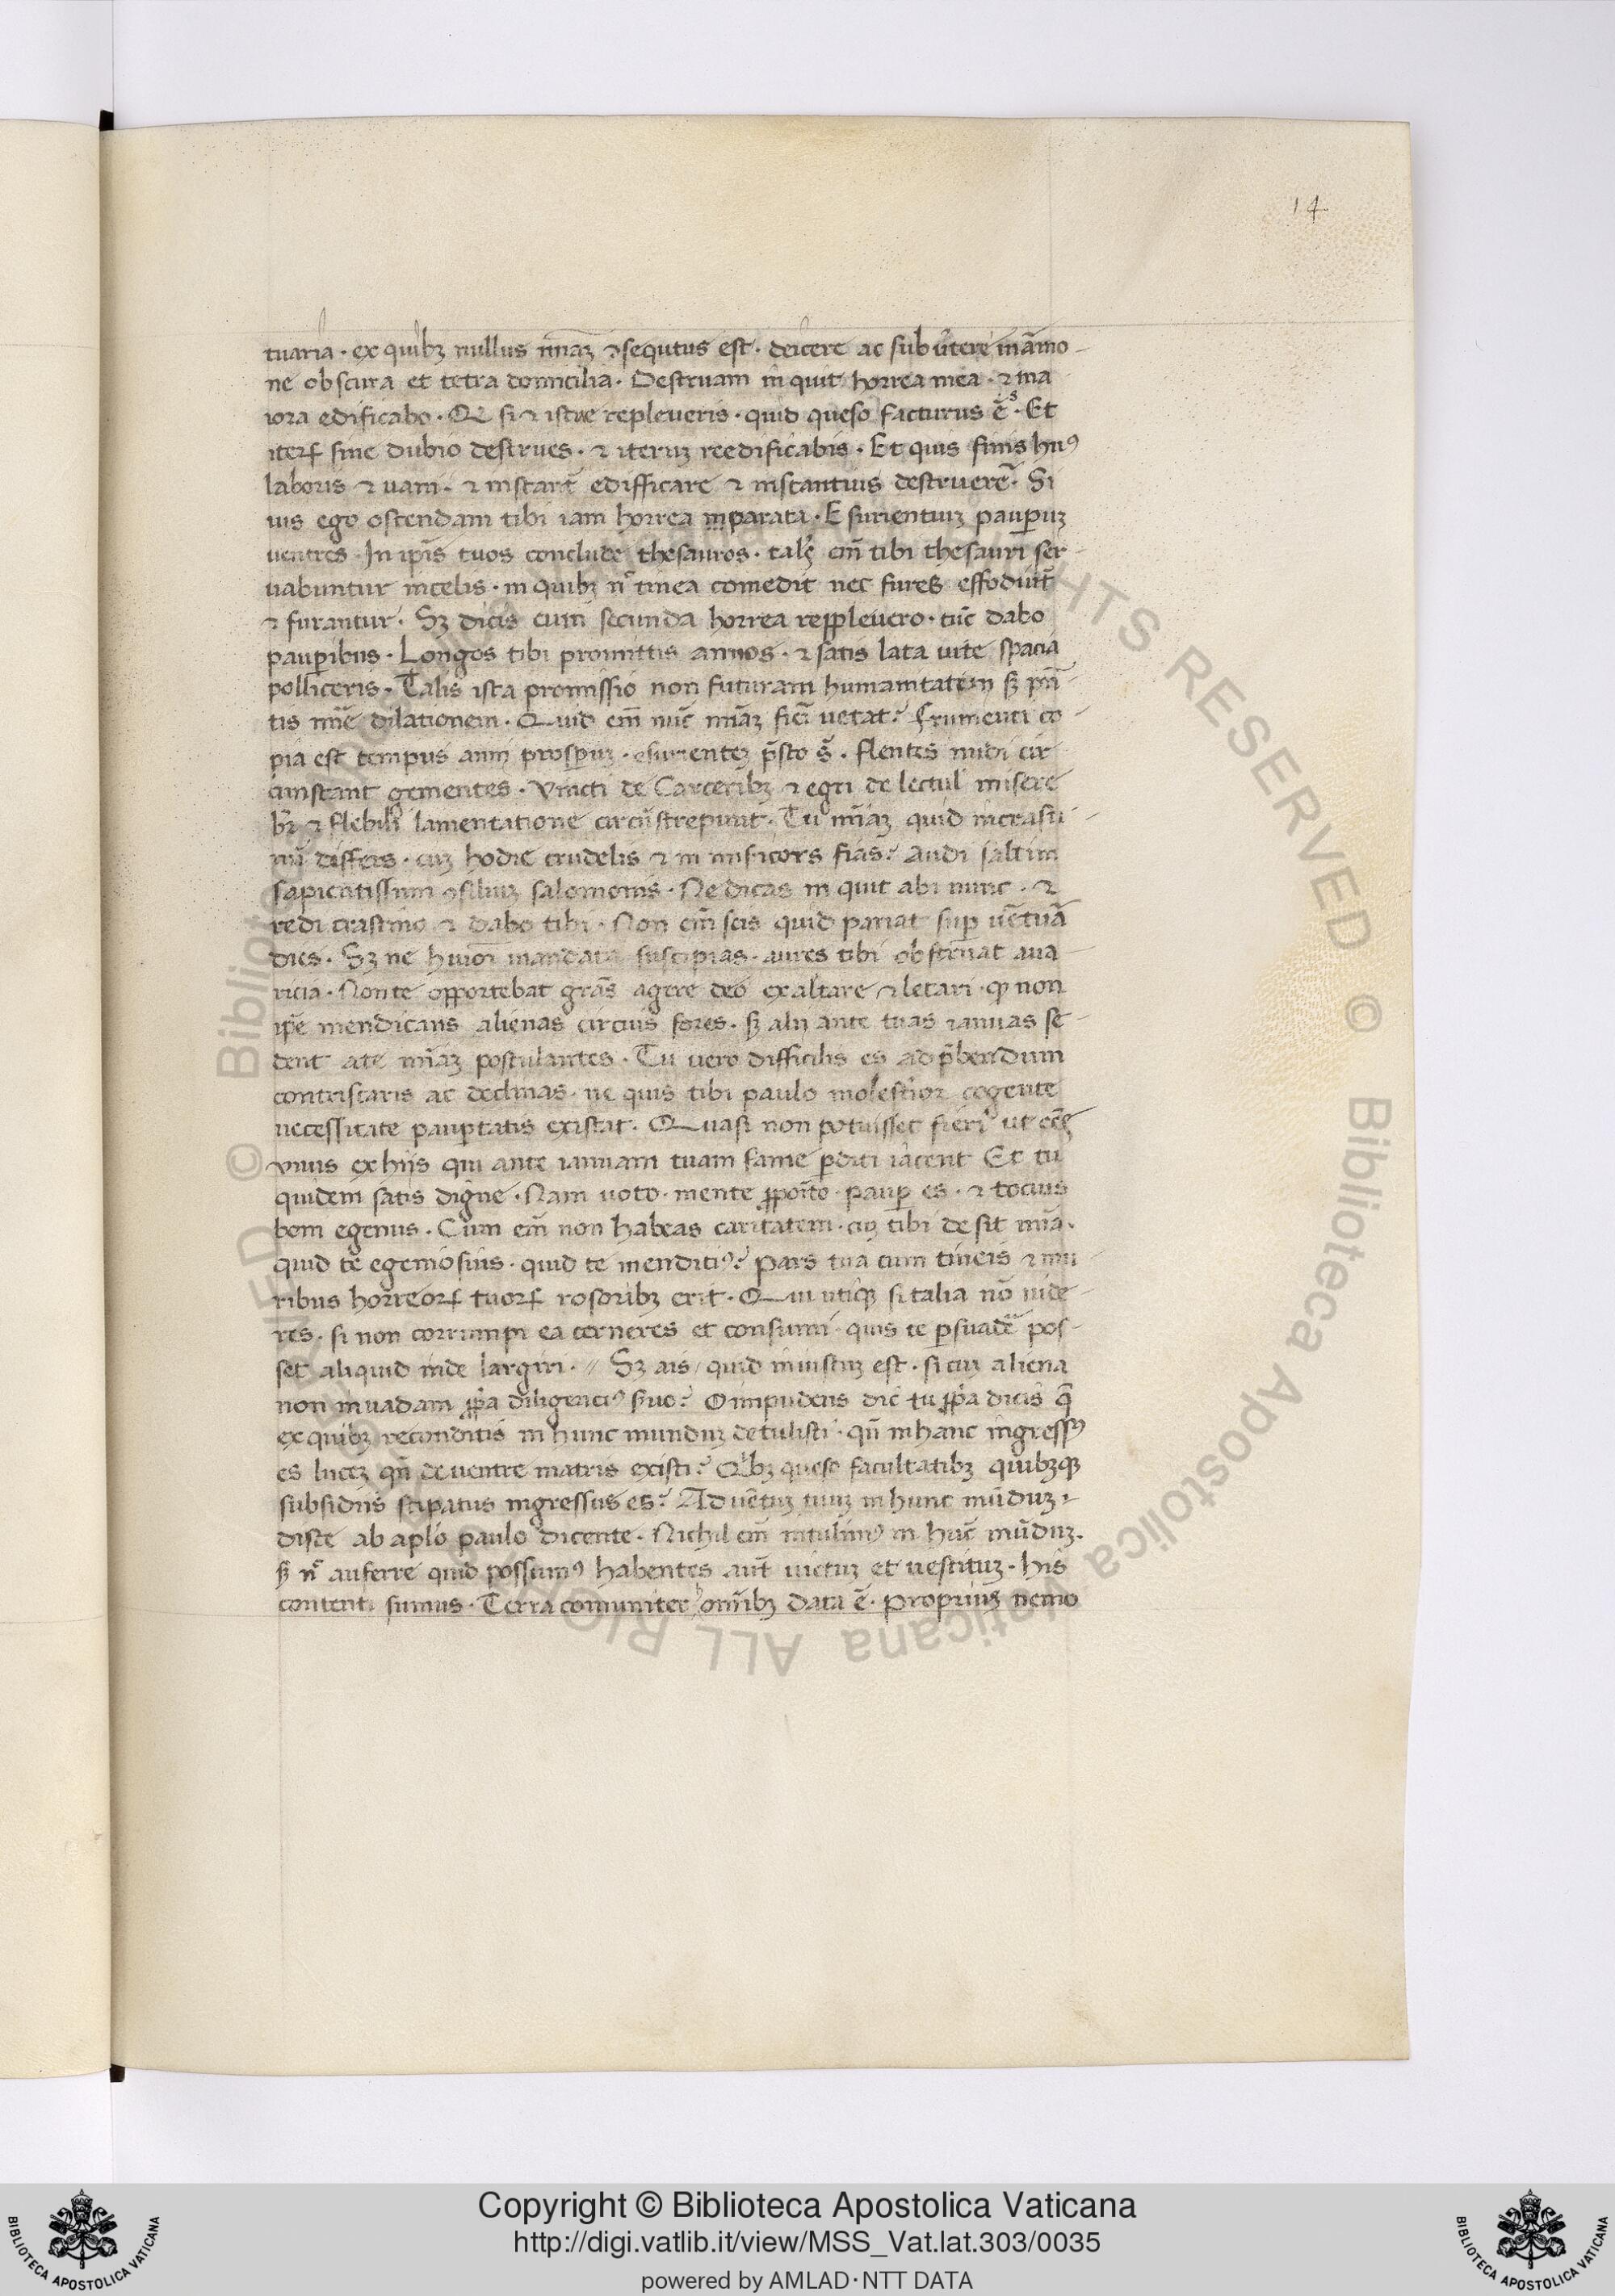 14
tuaria · ex quibꝫ nullus miãꝫ ↄsequtus est · deicere ac subu̾tere mãmo-
ne obscura et tetra domicilia · Destruam in quit horrea mea · ⁊ ma
iora edificabo · Qꝫ si ⁊ istae repleueris · quid queso facturus ẽs · Et
iterꝝ sine dubio destrues · ⁊ iteruꝫ reedificabis · Et quis finis huꝰ
laboris ⁊ uam · ⁊ instant̃ edifficare ⁊ instantius destruere · Si
uis ego ostendam tibi iam horrea inparata · E surientuꝫ paup̲uꝫ
uentres · In ip̃is tuos conclude thesauros · tales em̃ tibi thesauri ser-
uabuntur incelis · in quibꝫ n̊ tinea comedit nec fures effodiũt
⁊ furantur · Sꝫ dicis cum secunda horrea repleuero · tũc dabo
paup̲ibus · Longos tibi promittis annos · ⁊ satis lata uite spacia
polliceris · Talis ista promissio non futuram humanitatem sꝫ pñ-
tis mie dilationem · Quid em̃ nũc miãꝫ fieri uetat? Frumenti co-
pia est tempus anni prosp̲uꝫ · esurienteꝫ p̃sto s̃ · flentes nudi cir
cunstant gementes · Vincti de Carceribꝫ ⁊ egri de lectul misere
br̃ ⁊ flebili lamentatione circũstrepunt · Tu miãꝫ quid incrasti-
nũ differs · cuꝫ hodie crudelis ⁊ in misicors fias? Audi saltim
sapientissimi ↄsiliuꝫ salomonis · Ne dicas in quit abi nunc · ⁊
redi crastino ⁊ dabo tibi · Non em̃ scis quid pariat sup̲ uẽtuã
dies · Sꝫ ne huiõi mandata suscipias · aures tibi obstruat aua-
ricia · Non te opportebat grãs agere deo exaltare ⁊ letari · ꝙ non
ip̃e mendicans alienas circuis fores · sꝫ alij ante tuas ianuas se-
dent ate miãꝫ postulantes · Tu vero difficilis es ad p̃bendum
contristaris ac declinas · ne quis tibi paulo molestior cogente
necessitate paup̲tatis existat · Quasi non potuisset fieri ut eẽs
vnus ex hijs qui ante ianuam tuam fame p̲diti iacent Et tu
quidem satis digne · Nam uoto · mente ꝓpoĩto · paup̲ es · ⁊ tocius
boni egenus · Cum em̃ non habeas caritatem · cuꝫ tibi de sit miã ·
quid te egeniosius · quid te menditiꝰ? Pars tua cum tineis ⁊ mu-
ribus horreoꝝ tuoꝝ rosoribꝫ erit · Qui utiqꝫ si talia nõ uide-
res · si non corrumpi ea cerneres et consumi · quis te p̲suadẽ pos-
set aliquid inde largiri · // Sꝫ ais / quid iniustuꝫ est · si cuꝫ aliena
non inuadam ꝓp̃a diligenciꝰ s̃uo? O impudens dic tu ꝓp̃a dicis q̃
ex quibꝫ reconditis in hunc munduꝫ detulisti · qñ in hanc ingressꝰ
es luceꝫ qñ de uentre matris existi? Qibꝫ queso facultatibꝫ quibꝫqꝫ
subsidiis stipatus ingressus es? Aduẽtuꝫ tuuꝫ in hunc mũduꝫ ·
disce ab aplo paulo dicente · Nichil em̃ intulimꝰ in hũc mũduꝫ ·
sꝫ n̊ auferre quid possumꝰ habentes aut̃ uictuꝫ et uestituꝫ · his
contenti sumus · Terra comuniter om̃ibꝫ data ẽ · Propriuꝫ nemo
Copyright © Biblioteca Apostolica Vaticana
http://digi.vatlib.it/view/MSS_Vat.lat.303/0035
powered by AMLAD·NTT DATA
BIBLIOTECA APOSTOLICA VATICANA
BIBLIOTECA APOSTOLICA VATICANA
© Biblioteca Apostolica Vaticana ALL RIGHTS RESERVED